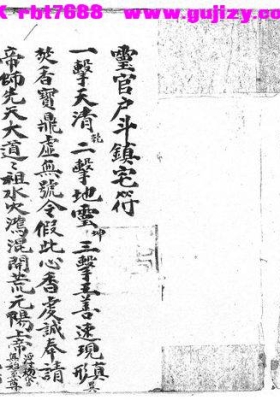 rbt7688 www.gujizy.c
靈官户斗鎮宅符
一擊天清乾二擊地靈坤三擊五善速現真形
焚香寶鼎虛無號令假此心香虔誠奉請
帝師先天大道道祖水火鴻混開荒元陽上帝